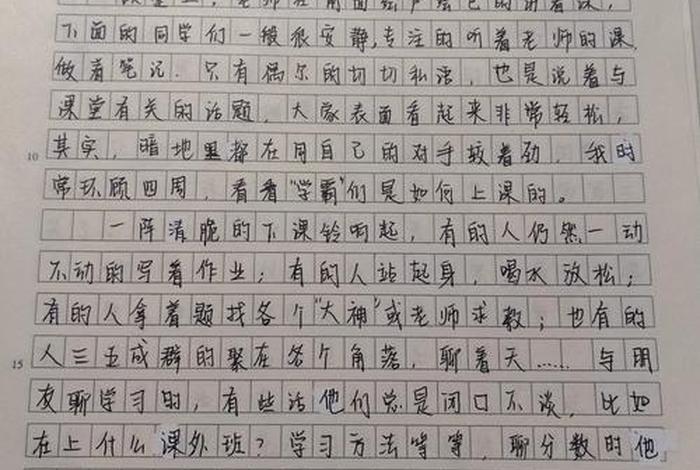 老师在前面绘声绘色的讲着课，
下面的同学们一般很安静，专注的听着老师的课，
做着笔记．只有偶尔的切切私语，也是说着与
课堂有关的话题，大家表面看起来非常轻松，
10 其实，暗地里都在同自己的对手较着劲，我时
常环顾四周，看看“学霸”们是如何上课的。
一阵清脆的下课铃响起，有的人仍然一动
不动的写着作业；有的人站起身，喝水放松；
有的人拿着题找各个“大神”或老师求教；也有的
15 人三五成群的聚在各个角落，聊着天……与朋
友聊学习时，有些话他们总是闭口不谈，比如
在上什么课外班？学习方法等等，聊分数时他